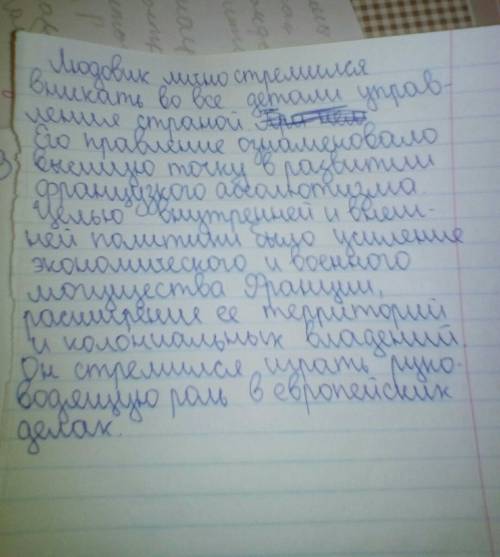 Людовик лично стремился
вникать во все детали управ-
ления страной
Его правление ознаменовало
высшую точку в развитии
французкого абсолютизма.
Целью внутренней и внеш-
ней политики было усиление
экономического и военного
могущества Франции,
расширение ее территорий
и колониальных владений.
Он стремился играть руко-
водящую роль в европейских
делах.